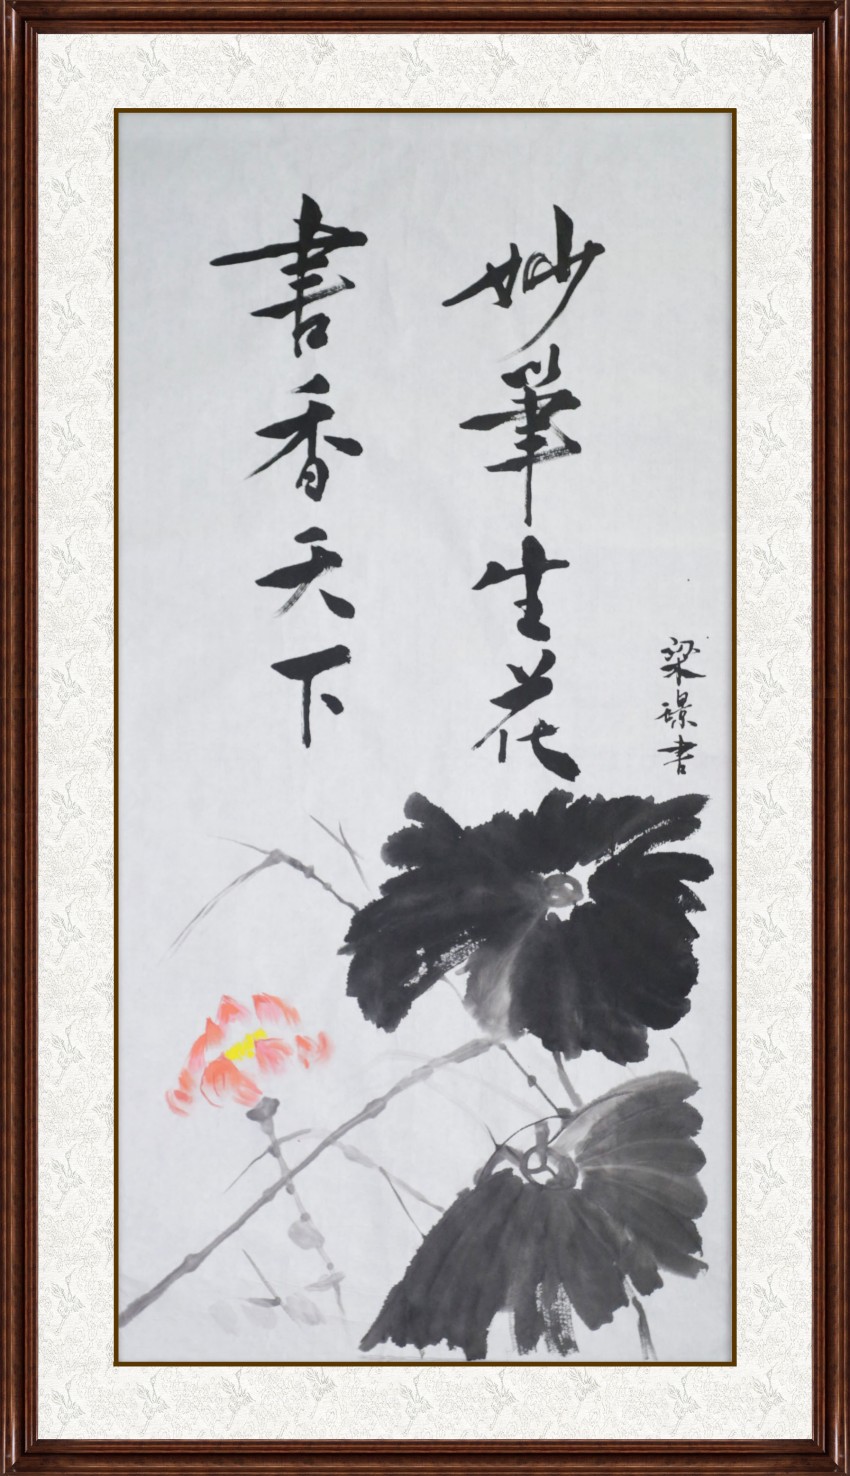 妙筆生花
書香天下
梁璟書